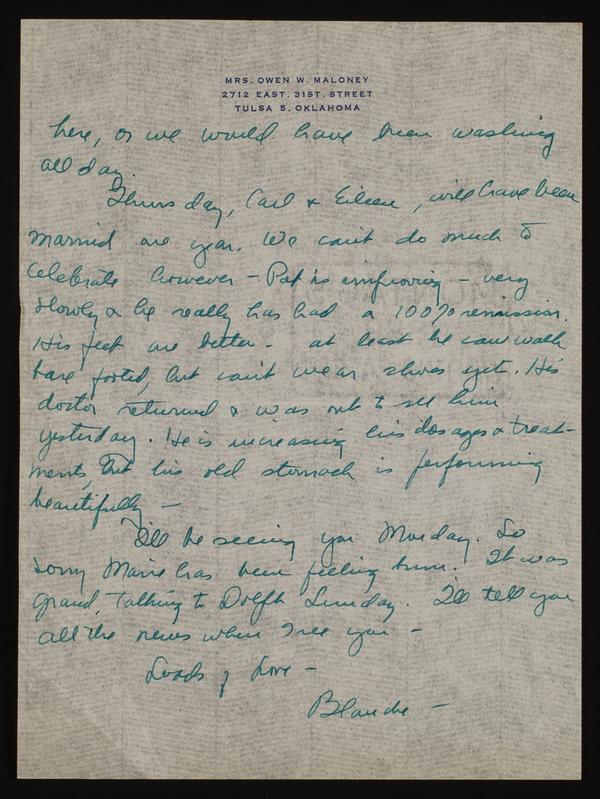 MRS. OWEN W. MALONEY
2712 EAST. 31ST. STREET
TULSA 5, OKLAHOMA
here, or we would have been washing
all day.
Thursday, Carl & Eileen, will have been
married one year. We can't do much to
celebrate however - Pat is improving - very
slowly & he really has had a 100% remission.
His feet are better - at least he can walk
bare footed, but can't wear shoes yet. His
doctor returned & was out to see him
yesterday. He is increasing his dosages & treat-
ments, but his old stomach is performing
beautifully -
I'll be seeing you Monday. So
sorry Marie has been feeling bum. It was
grand, talking to Dolph Sunday. I'll tell you
all the news when I see you -
Loads of Love -
Blanche -